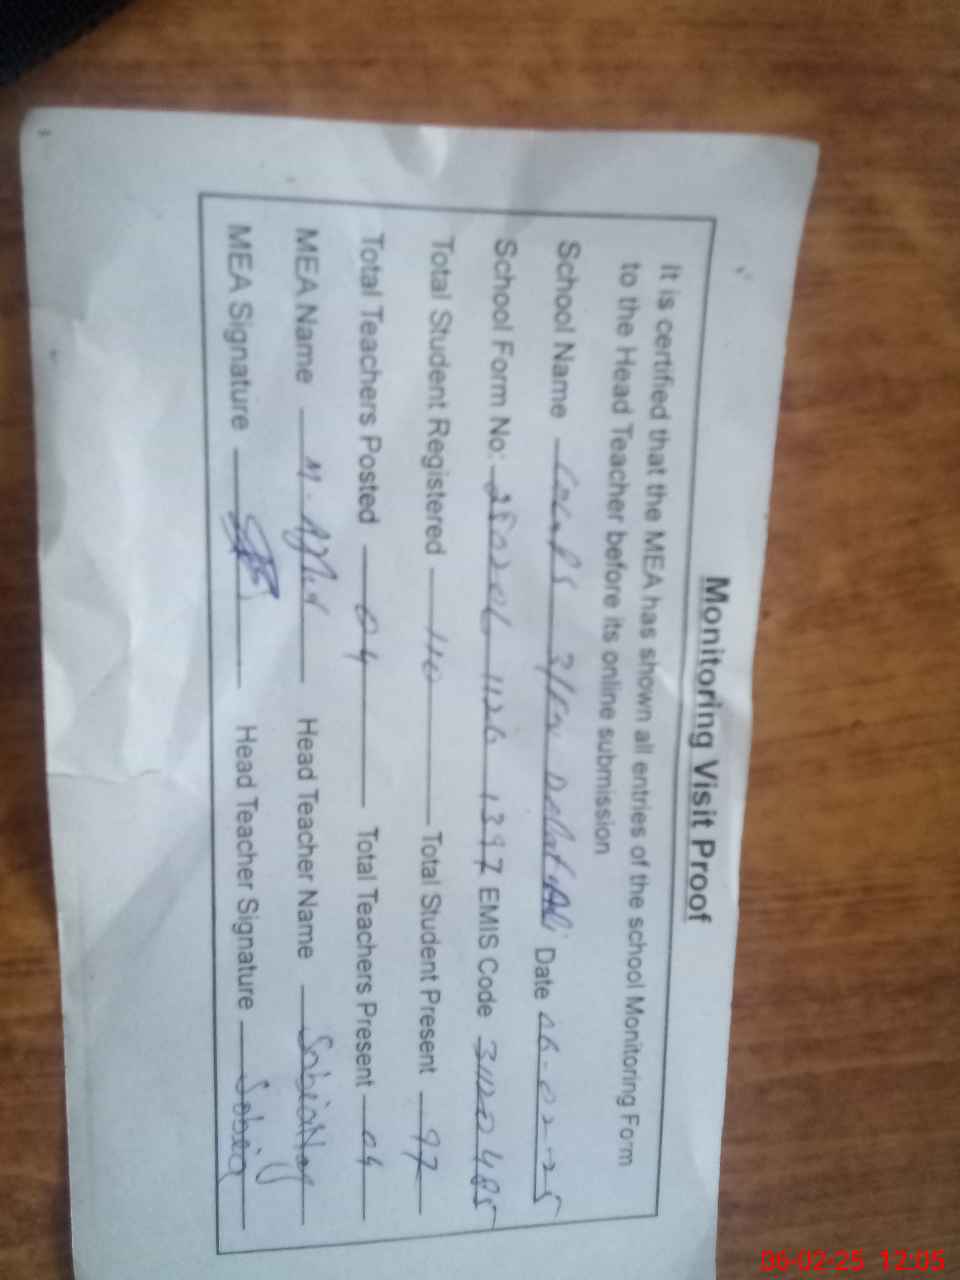 Monitoring Visit Proof
It is certified that the MEA has shown all entries of the school Monitoring Form
to the Head Teacher before its online submission
School Name Date 06-02-25
School Form No: 1397 EMIS Code
Total Student Registered 110 Total Student Present 97
Total Teachers Posted 04 Total Teachers Present 04
MEA Name M. Head Teacher Name Sobia
MEA Signature Head Teacher Signature Sobia
06-02-25 12:05